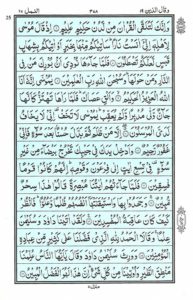 وقال الذين ١٩ ٣٨٨ النمل ٢٧
وَإِنَّكَ لَتُلَقَّى الْقُرْاٰنَ مِنْ لَّدُنْ حَكِيْمٍ عَلِيْمٍ ۝ اِذْ قَالَ مُوْسٰى
لِاَهْلِهٖٓ اِنِّيْٓ اٰنَسْتُ نَارًا ؕ سَاٰتِيْكُمْ مِّنْهَا بِخَبَرٍ اَوْ اٰتِيْكُمْ بِشِهَابٍ
قَبَسٍ لَّعَلَّكُمْ تَصْطَلُوْنَ ۝ فَلَمَّا جَآءَهَا نُوْدِيَ اَنْۢ بُوْرِكَ مَنْ فِي
النَّارِ وَمَنْ حَوْلَهَا ؕ وَسُبْحٰنَ اللّٰهِ رَبِّ الْعٰلَمِيْنَ ۝ يٰمُوْسٰٓى اِنَّهٗٓ اَنَا
اللّٰهُ الْعَزِيْزُ الْحَكِيْمُ ۝ وَاَلْقِ عَصَاكَ ؕ فَلَمَّا رَاٰهَا تَهْتَزُّ كَاَنَّهَا
جَآنٌّ وَّلّٰى مُدْبِرًا وَّلَمْ يُعَقِّبْ ؕ يٰمُوْسٰى لَا تَخَفْ ۫ اِنِّيْ لَا يَخَافُ
لَدَيَّ الْمُرْسَلُوْنَ ۝ اِلَّا مَنْ ظَلَمَ ثُمَّ بَدَّلَ حُسْنًۢا بَعْدَ سُوْٓءٍ فَاِنِّيْ
غَفُوْرٌ رَّحِيْمٌ ۝ وَاَدْخِلْ يَدَكَ فِيْ جَيْبِكَ تَخْرُجْ بَيْضَآءَ مِنْ غَيْرِ
سُوْٓءٍ ۫ فِيْ تِسْعِ اٰيٰتٍ اِلٰى فِرْعَوْنَ وَقَوْمِهٖ ؕ اِنَّهُمْ كَانُوْا قَوْمًا
فٰسِقِيْنَ ۝ فَلَمَّا جَآءَتْهُمْ اٰيٰتُنَا مُبْصِرَةً قَالُوْا هٰذَا سِحْرٌ
مُّبِيْنٌ ۝ وَجَحَدُوْا بِهَا وَاسْتَيْقَنَتْهَآ اَنْفُسُهُمْ ظُلْمًا وَّعُلُوًّا ؕ فَانْظُرْ
كَيْفَ كَانَ عَاقِبَةُ الْمُفْسِدِيْنَ ۝ وَلَقَدْ اٰتَيْنَا دَاوٗدَ وَسُلَيْمٰنَ
عِلْمًا ۚ وَقَالَا الْحَمْدُ لِلّٰهِ الَّذِيْ فَضَّلَنَا عَلٰى كَثِيْرٍ مِّنْ عِبَادِهِ
الْمُؤْمِنِيْنَ ۝ وَوَرِثَ سُلَيْمٰنُ دَاوٗدَ وَقَالَ يٰٓاَيُّهَا النَّاسُ عُلِّمْنَا
مَنْطِقَ الطَّيْرِ وَاُوْتِيْنَا مِنْ كُلِّ شَيْءٍ ؕ اِنَّ هٰذَا لَهُوَ الْفَضْلُ الْمُبِيْنُ ۝